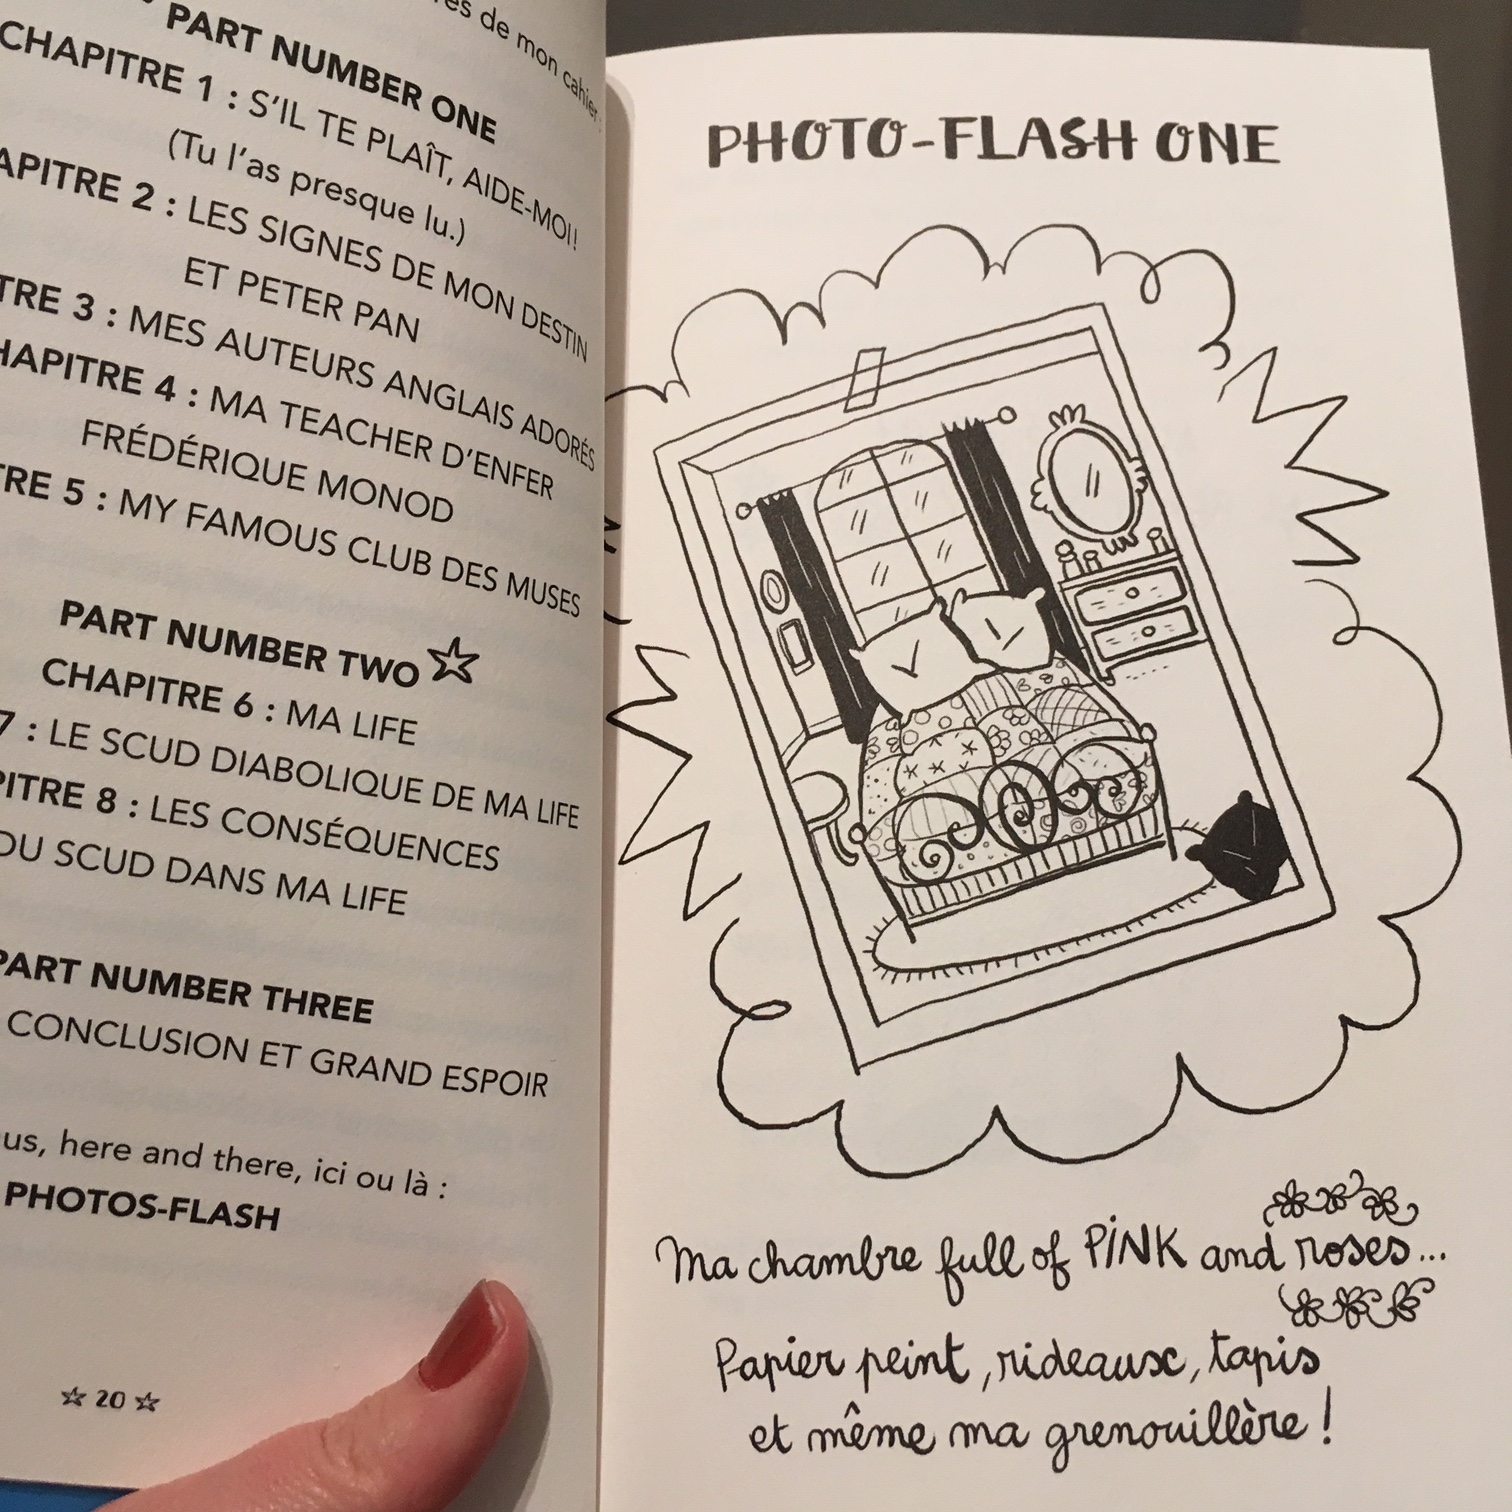 res de mon cahier
PART NUMBER ONE
CHAPITRE 1 : S'IL TE PLAÎT, AIDE-MOI!
(Tu l'as presque lu.)
APITRE 2 : LES SIGNES DE MON DESTIN
ET PETER PAN
TRE 3 : MES AUTEURS ANGLAIS ADORÉS
HAPITRE 4 : MA TEACHER D'ENFER
FRÉDÉRIQUE MONOD
TRE 5 : MY FAMOUS CLUB DES MUSES
PART NUMBER TWO
CHAPITRE 6 : MA LIFE
7 : LE SCUD DIABOLIQUE DE MA LIFE
PITRE 8 : LES CONSÉQUENCES
DU SCUD DANS MA LIFE
PART NUMBER THREE
CONCLUSION ET GRAND ESPOIR
us, here and there, ici ou là :
PHOTOS-FLASH
20
PHOTO-FLASH ONE
Ma chambre full of PINK and roses...
Papier peint, rideaux, tapis
et même ma grenouillère !